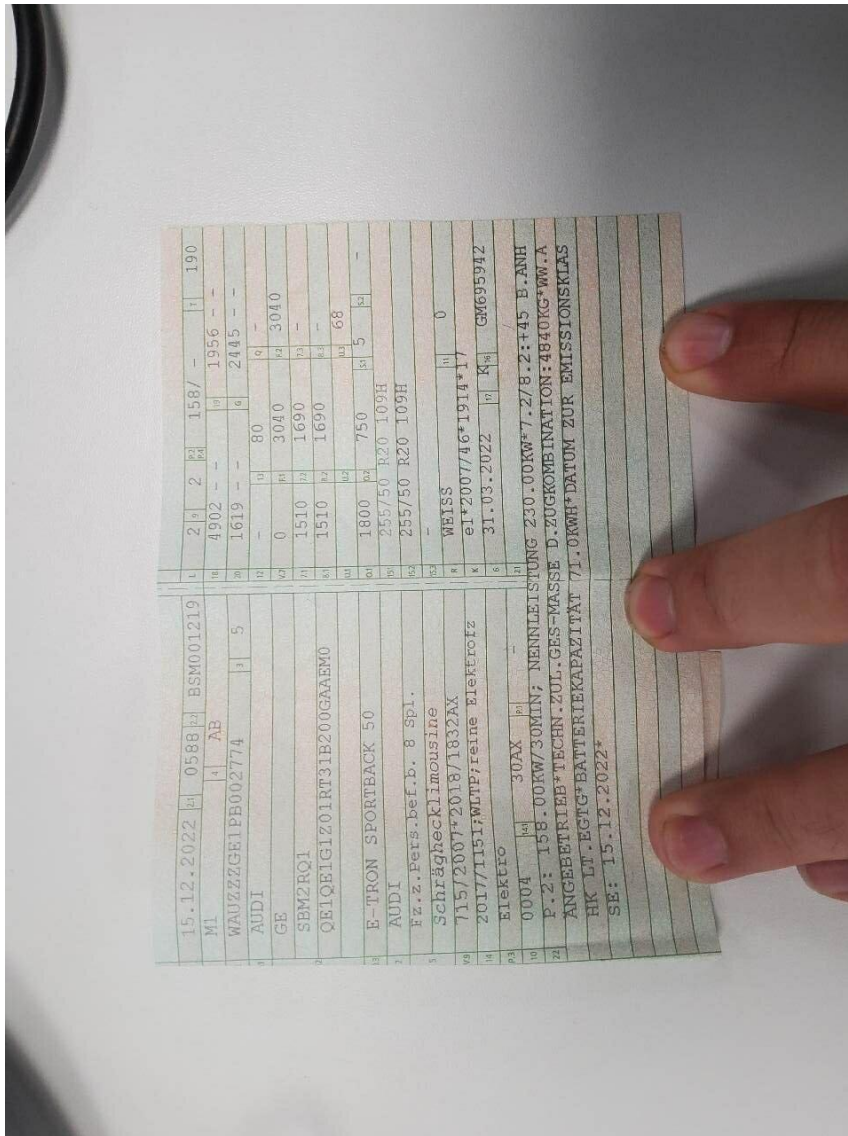 15.12.2022 2.1 0588 2.2 BSM001219
M1 4 AB
WAUZZZGE1PB002774 3 5
AUDI
GE
SBM2RQ1
QE1QE1G1Z01RT31B200GAAEM0
E-TRON SPORTBACK 50
AUDI
Fz.z.Pers.bef.b. 8 Spl.
Schräghecklimousine
715/2007*2018/1832AX
2017/1151;WLTP;reine Elektrofz
Elektro
0004 14.1 30AX P.1 -
L 2 9 2 P.2 P.4 158/ - T 190
18 4902 - - 19 1956 - -
20 1619 - - G 2445 - -
12 - 13 80 Q -
V.7 0 F.1 3040 F.2 3040
7.1 1510 7.2 1690 7.3 -
8.1 1510 8.2 1690 8.3 -
U.1 U.2 U.3 68
O.1 1800 O.2 750 S.1 5 S.2 -
15.1 255/50 R20 109H
15.2 255/50 R20 109H
15.3 -
R WEISS 11 0
K e1*2007/46*1914*17
6 31.03.2022 17 K 16 GM695942
21
10
22 P.2: 158.00KW/30MIN; NENNLEISTUNG 230.00KW*7.2/8.2:+45 B.ANH
ANGEBETRIEB*TECHN.ZUL.GES-MASSE D.ZUGKOMBINATION:4840KG*WW.A
HK LT.EGTG*BATTERIEKAPAZITÄT 71.0KWH*DATUM ZUR EMISSIONSKLAS
SE: 15.12.2022*